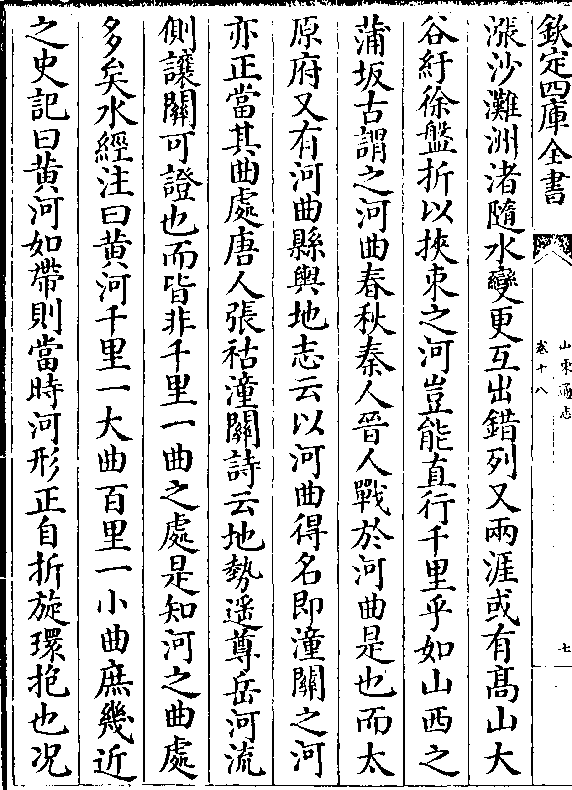 欽定四庫全書
山東通志
卷十八
七
漲沙灘洲渚隨水變更互出錯列又兩涯或有髙山大
谷紆徐盤折以挾束之河豈能直行千里乎如山西之
蒲坂古謂之河曲春秋秦人晉人戰於河曲是也而太
原府又有河曲縣輿地志云以河曲得名即潼關之河
亦正當其曲處唐人張祜潼關詩云地勢遥尊岳河流
側讓關可證也而皆非千里一曲之處是知河之曲處
多矣水經注曰黄河千里一大曲百里一小曲庶幾近
之史記曰黄河如帶則當時河形正自折旋環抱也况